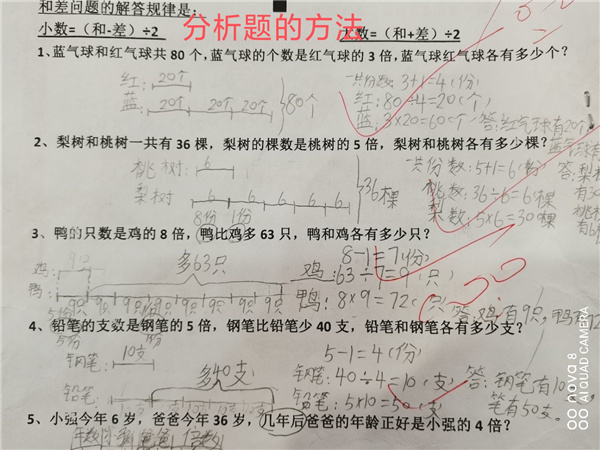 和差问题的解答规律是：
小数=（和-差）÷2 大数=（和+差）÷2
分析题的方法
1、蓝气球和红气球共 80 个，蓝气球的个数是红气球的 3 倍，蓝气球红气球各有多少个？
红：20个
蓝：20个 20个 20个
80个
共份数：3+1=4（份）
红：80÷4=20（个）
蓝：3×20=60（个）
答：红气球有20个
蓝气球有
2、梨树和桃树一共有 36 棵，梨树的棵数是桃树的 5 倍，梨树和桃树各有多少棵？
桃树：6
梨树 6 6 6 6 6
36棵
共份数：5+1=6（份）
桃数：36÷6=6棵
梨数：5×6=30棵
答：梨
有30
桃树
有6
3、鸭的只数是鸡的 8 倍，鸭比鸡多 63 只，鸭和鸡各有多少只？
8份 1份
鸡：9只
多63只
鸭：9只 9只 9只 9只 9只 9只 9只 9只
8-1=7（份）
鸡：63÷7=9（只）
鸭：8×9=72（只）
答：鸡有9只，鸭有72
4、铅笔的支数是钢笔的 5 倍，钢笔比铅笔少 40 支，铅笔和钢笔各有多少支？
5份
钢笔：10支
多40支
铅笔：
5-1=4（份）
钢笔：40÷4=10（支）
铅笔：5×10=50（支）
答：钢笔有10
笔有50支。
5、小强今年 6 岁，爸爸今年 36 岁，几年后爸爸的年龄正好是小强的 4 倍？
年数 小强 爸爸 倍数
nova 8
AI QUAD CAMERA